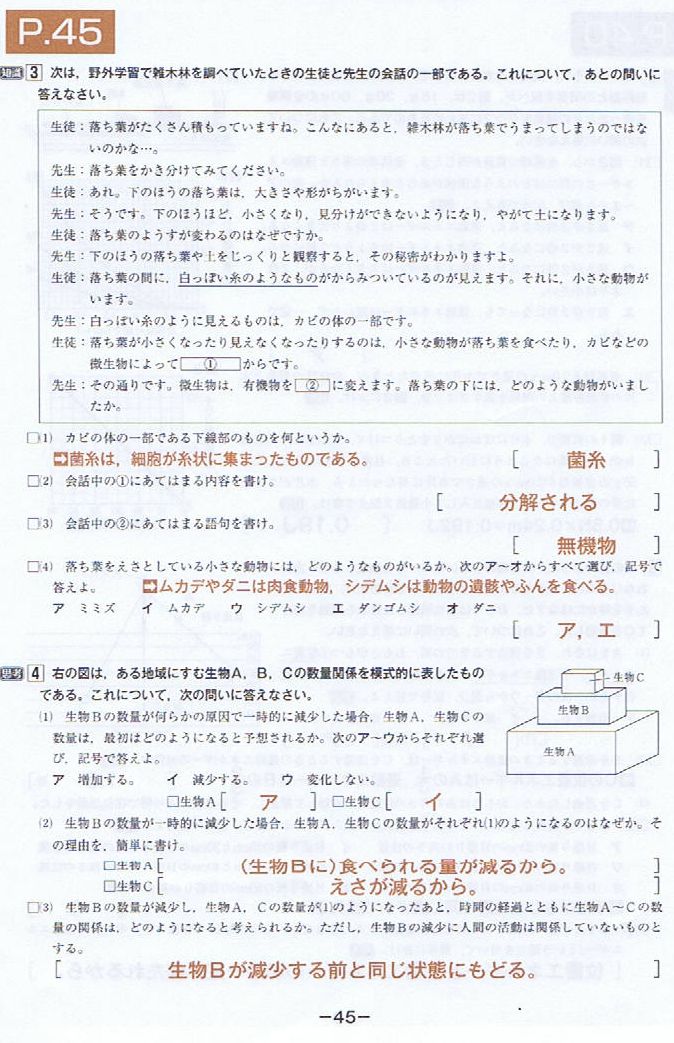 P.45
知識 3 次は，野外学習で雑木林を調べていたときの生徒と先生の会話の一部である。これについて，あとの問いに
答えなさい。
生徒：落ち葉がたくさん積もっていますね。こんなにあると，雑木林が落ち葉でうまってしまうのではな
いのかな…。
先生：落ち葉をかき分けてみてください。
生徒：あれ。下のほうの落ち葉は，大きさや形がちがいます。
先生：そうです。下のほうほど，小さくなり，見分けができないようになり，やがて土になります。
生徒：落ち葉のようすが変わるのはなぜですか。
先生：下のほうの落ち葉や土をじっくりと観察すると，その秘密がわかりますよ。
生徒：落ち葉の間に，白っぽい糸のようなものがからみついているのが見えます。それに，小さな動物が
います。
先生：白っぽい糸のように見えるものは，カビの体の一部です。
生徒：落ち葉が小さくなったり見えなくなったりするのは，小さな動物が落ち葉を食べたり，カビなどの
微生物によって ① からです。
先生：その通りです。微生物は，有機物を ② に変えます。落ち葉の下には，どのような動物がいまし
たか。
□(1) カビの体の一部である下線部のものを何というか。
➡菌糸は，細胞が糸状に集まったものである。 [ 菌糸 ]
□(2) 会話中の①にあてはまる内容を書け。
[ 分解される ]
□(3) 会話中の②にあてはまる語句を書け。
[ 無機物 ]
□(4) 落ち葉をえさとしている小さな動物には，どのようなものがいるか。次のア～オからすべて選び，記号で
答えよ。 ➡ムカデやダニは肉食動物，シデムシは動物の遺骸やふんを食べる。
ア ミミズ イ ムカデ ウ シデムシ エ ダンゴムシ オ ダニ
[ ア，エ ]
思考 4 右の図は，ある地域にすむ生物A，B，Cの数量関係を模式的に表したもの
である。これについて，次の問いに答えなさい。
生物C
生物B
生物A
(1) 生物Bの数量が何らかの原因で一時的に減少した場合，生物A，生物Cの
数量は，最初はどのようになると予想されるか。次のア～ウからそれぞれ選
び，記号で答えよ。
ア 増加する。 イ 減少する。 ウ 変化しない。
□生物A [ ア ] □生物C [ イ ]
(2) 生物Bの数量が一時的に減少した場合，生物A，生物Cの数量がそれぞれ(1)のようになるのはなぜか。そ
の理由を，簡単に書け。
□生物A [ (生物Bに)食べられる量が減るから。 ]
□生物C [ えさが減るから。 ]
□(3) 生物Bの数量が減少し，生物A，Cの数量が(1)のようになったあと，時間の経過とともに生物A～Cの数
量の関係は，どのようになると考えられるか。ただし，生物Bの減少に人間の活動は関係していないものと
する。
[ 生物Bが減少する前と同じ状態にもどる。 ]
－45－